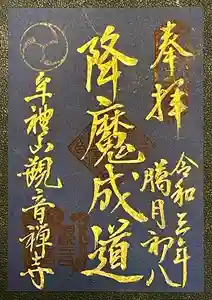 奉拝
令和三年
臈月初八
降魔成道
牟禮山觀音禅寺